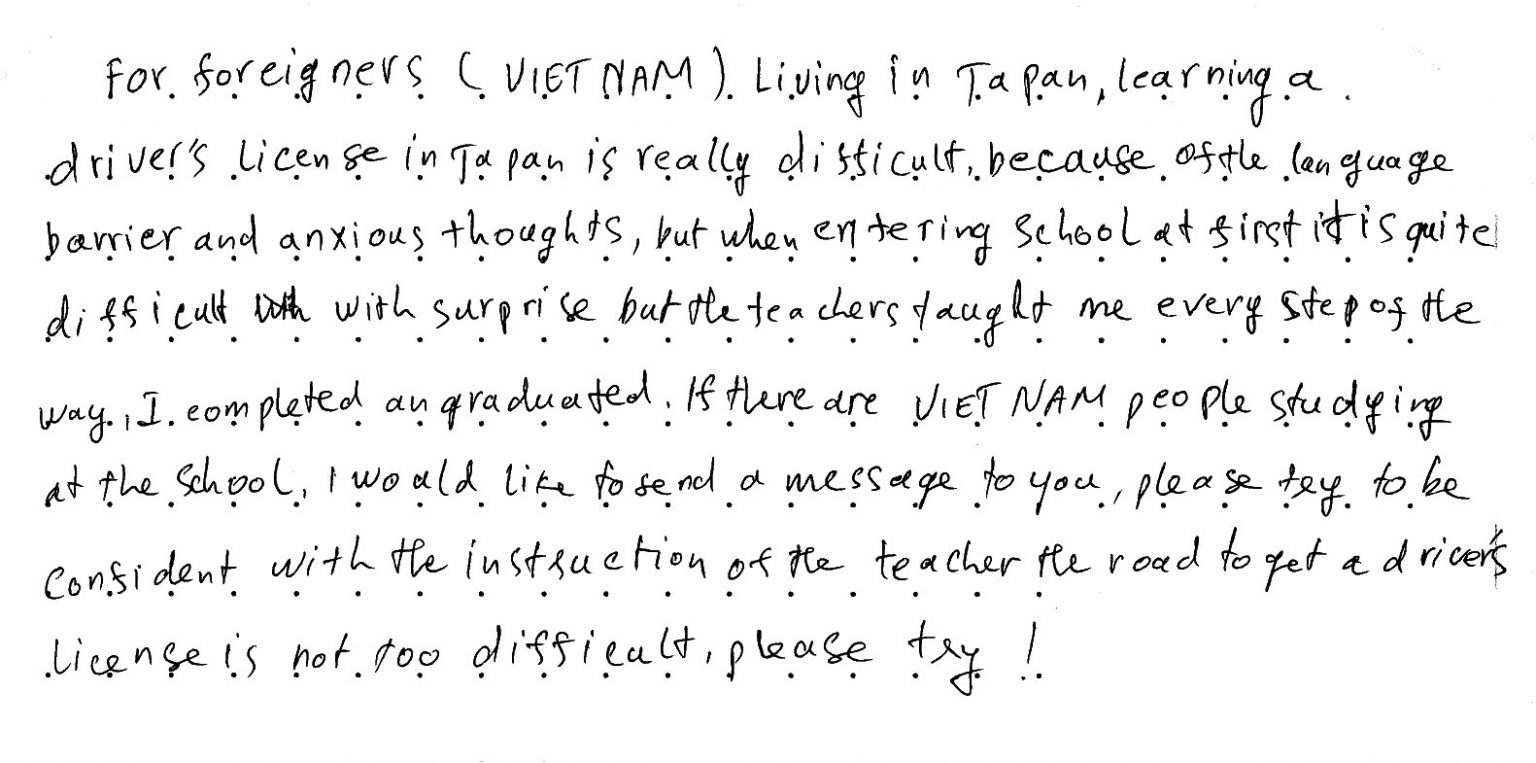 For foreigners (VIETNAM) Living in Japan, learning a
driver's license in Japan is really difficult, because of the language
barrier and anxious thoughts, but when entering school at first it is quite
difficult with surprise but the teachers taught me every step of the
way, I completed an graduated. If there are VIETNAM people studying
at the school, I would like to send a message to you, please try to be
confident with the instruction of the teacher the road to get a driver's
license is not too difficult, please try!